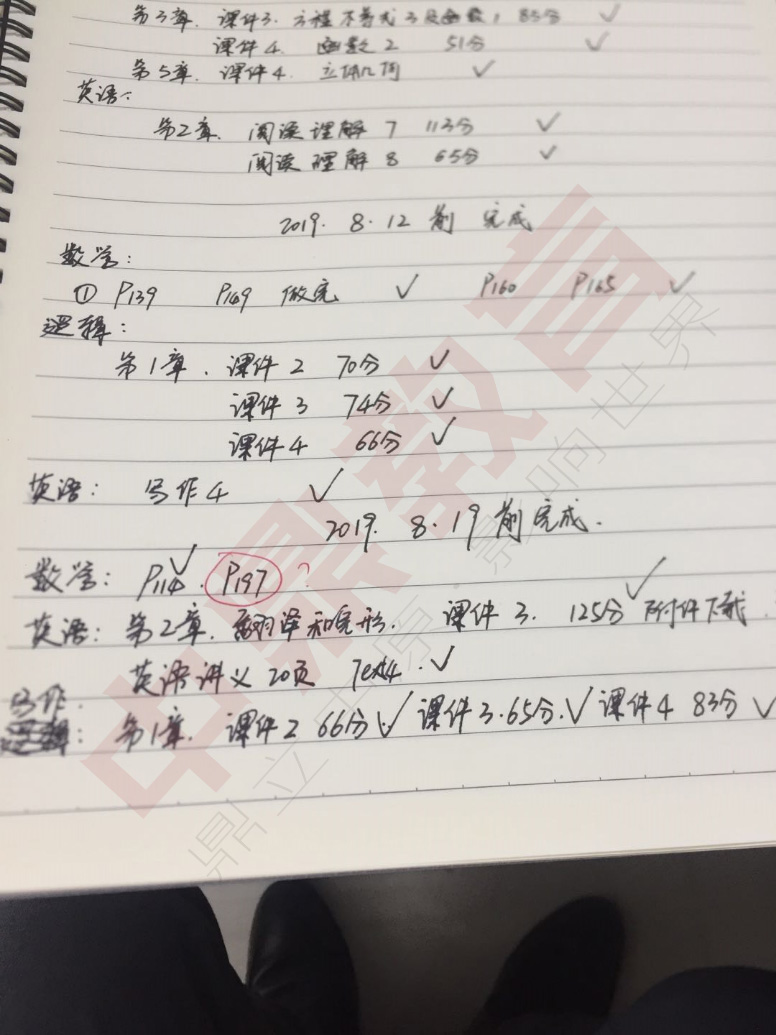 第3章. 课件3. 方程不等式3及函数1 85分 ✓
课件4. 函数2 51分 ✓
第5章. 课件4. 立体几何 ✓
英语:
第2章. 阅读理解7 113分 ✓
阅读理解8 65分 ✓
2019. 8.12 前完成
数学:
① P139 P149 做完 ✓ P160 P165 ✓
逻辑:
第1章. 课件2 70分 ✓
课件3 74分 ✓
课件4 66分 ✓
英语: 写作4 ✓
2019. 8.19 前完成.
数学: P114 ✓. P197 ?
英语: 第2章. 翻译和完形. 课件3. 125分 ✓ 附件下载.
英语讲义20页 Text4. ✓
写作.
第1章. 课件2 66分. ✓ 课件3. 65分. ✓ 课件4 83分 ✓
中鼎教育
鼎立中原·影响世界